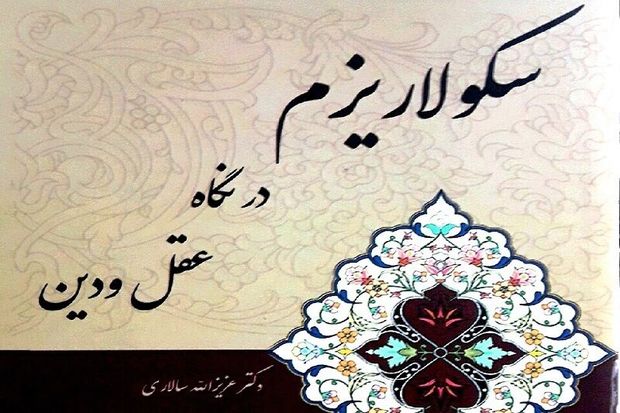 سکولاریزم
در نگاه
عقل و دین
دکتر عزیزالله سالاری